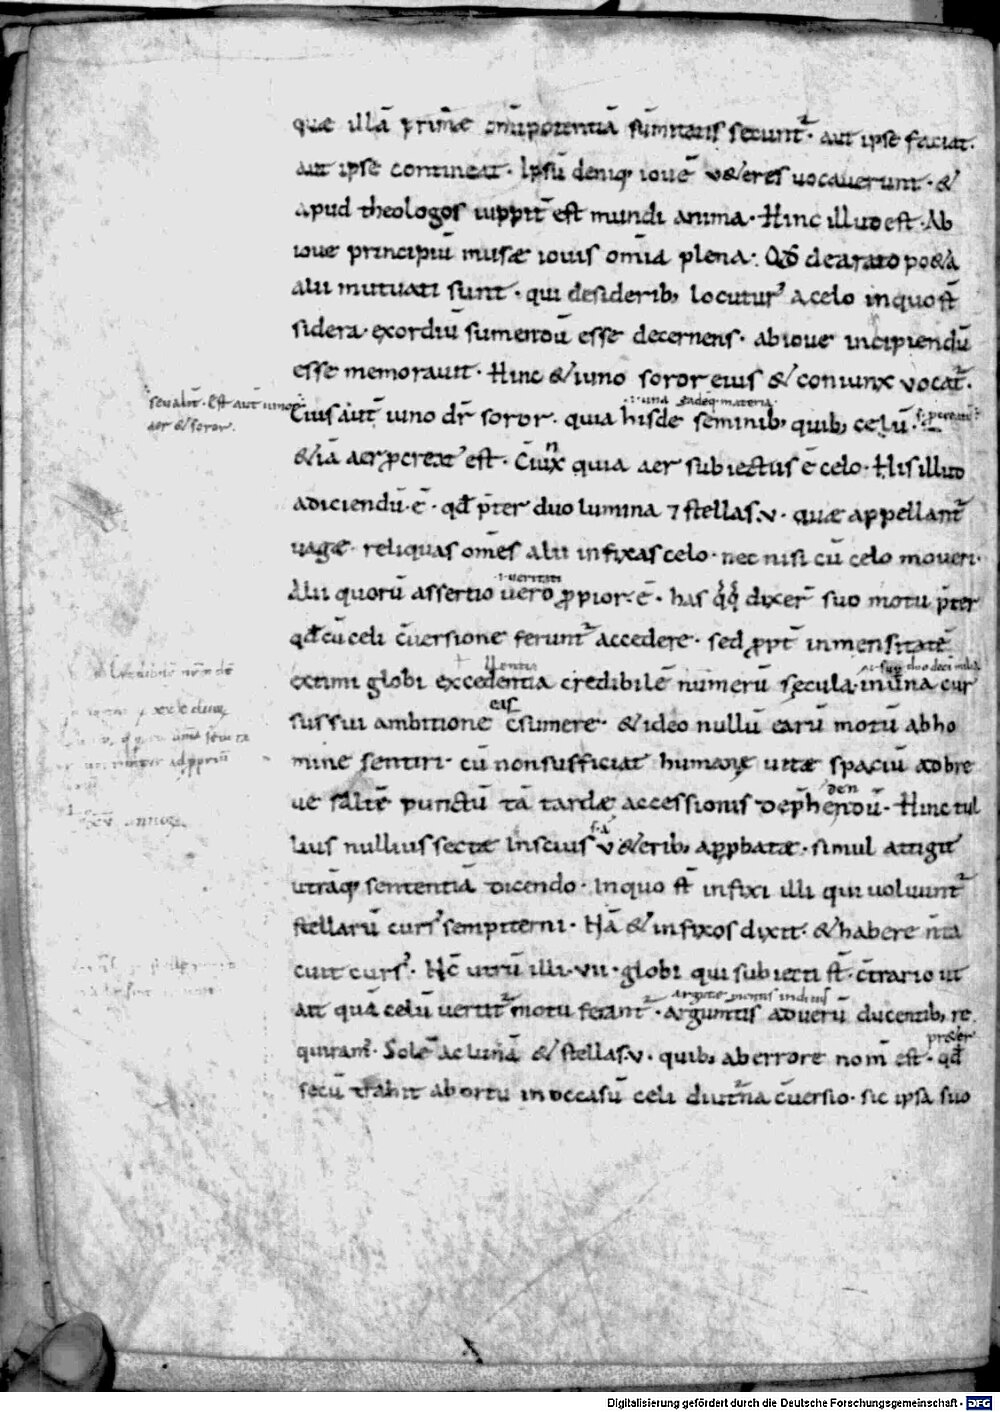 quae illā primae omīpotentiā sūmitatis secunt᷑· aut ipse faciat·
aut ipse contineat· Ipsū deniq; iouē v&eres uocauerunt· &
apud theologos iuppit̄ est mundi anima· Hinc illud est· Ab
ioue principiū musae iouis om̄ia plena· Qd̄ de arato po&a
alii mutuati sunt· qui de siderib; locutur᷒ a celo in quo st̄
sidera· exordiū sumendū esse decernens· ab ioue incipiendū
esse memorauit· Hinc & iuno soror eius & coniunx vocat᷑·
seu alit̄· Est aut̄ iuno
aer & soror·
·i· una eadēq; materia·
Eius aut̄ iuno dr̄ soror· quia hisdē seminib; quib; celū·
& iā aer ꝓcreat᷒ est· Ciūx quia aer subiectus ē celo· His illud
n
adiciendū·ē· qd̄ p̄ter duo lumina ⁊ stellas·v· quae appellant᷑
uagae· reliquas om̄es alii infixas celo· nec nisi cū celo moueri·
·i· ueritati
Alii quorū assertio uero ꝓpior·ē· has q̊q; dixer̄ suo motu p̄ter
qd̄ cū celi c̄uersione ferunt᷑ accedere· sed ꝓpt̄ inmensitatē
extimi globi excedentia credibilē numerū sęcula· in una cur
sus sui ambitione c̄sumere· & ideo nullū earū motū ab ho
eis
mine sentiri· cū non sufficiat humanę uitae spaciū ad bre
ue saltē punctū tā tardae accessionis dep̄hendū· Hinc tul
den
lius nullius sectae inscius v&erib; apꝓbatae· simul attigit
utrāq; sententiā dicendo· In quo st̄ infixi illi qui uoluunt᷑
stellarū curs᷒ sempiterni· Nā & infixos dixit· & habere n̄ ta
cuit curs᷒· Nc̄ utrū illi·vii· globi qui subiecti st̄· c̄trario ut
ait quā celū uertit᷑ motu ferant᷑· argumtis ad uerū ducentib; re
quiram᷒· Solē ac lunā & stellas·v· quib; ab errore nom̄ est· qd̄
praeter
secū trahit ab ortu in occasū celi diut᷑na c̄uersio· sic ipsa suo
Digitalisierung gefördert durch die Deutsche Forschungsgemeinschaft - DFG